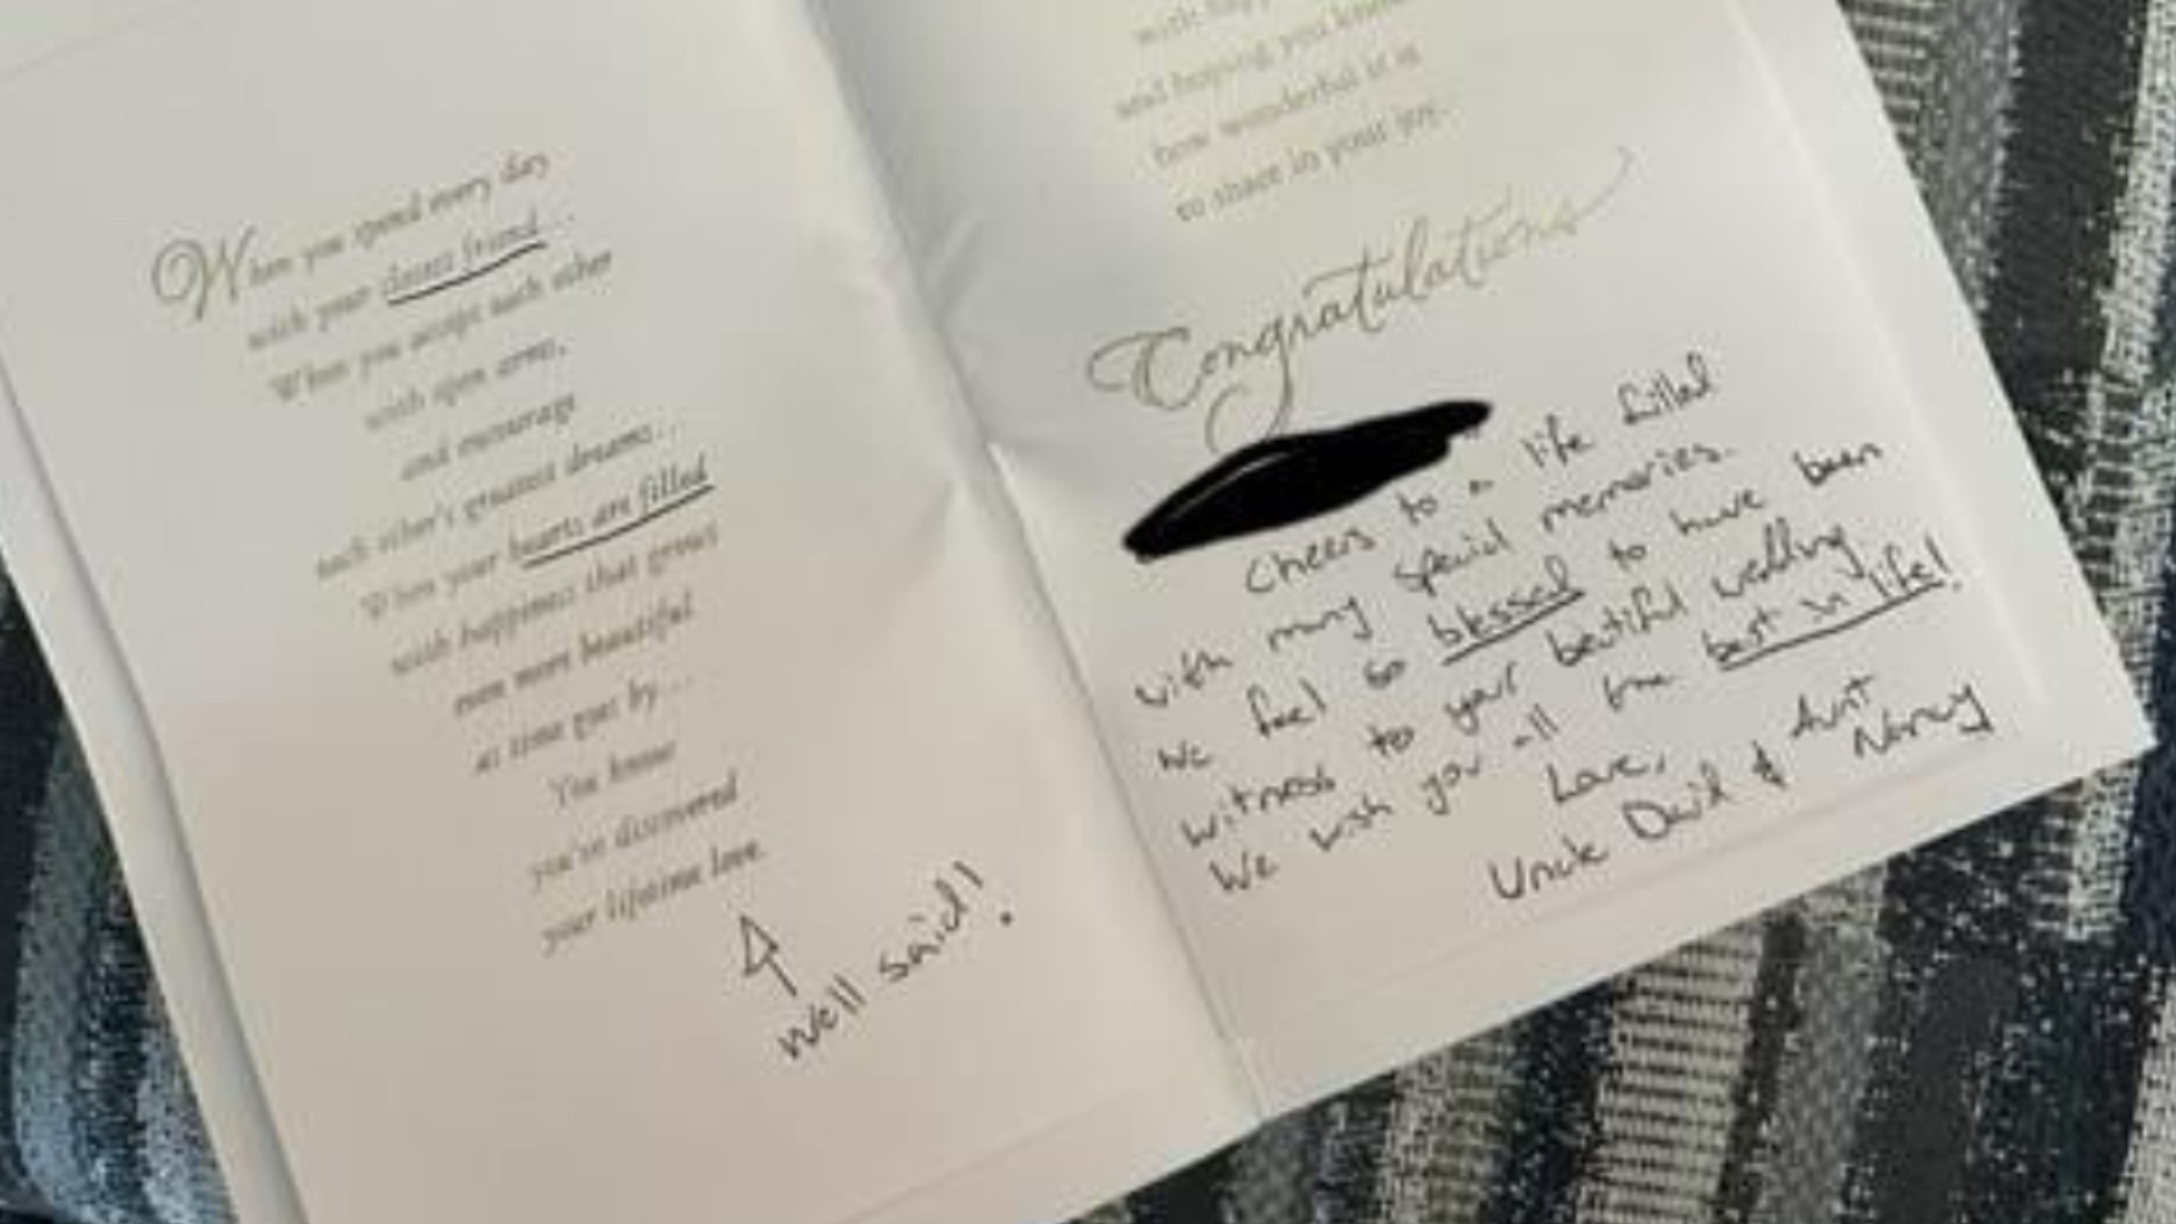 When you spend every day
with your closest friend...
When you accept each other
with open arms,
and encourage
each other's greatest dreams...
When your hearts are filled
with happiness that grows
even more beautiful
as time goes by...
You know
you've discovered
your lifetime love.
Well said!
with
and hoping, you know
how wonderful it is
to share in your joy.
Congratulations
Cheers to a life filled
with many special memories.
We feel so blessed to have been
witness to your beatiful wedding.
We wish you all the best in life!
Love,
Uncle David & Aunt
Nancy